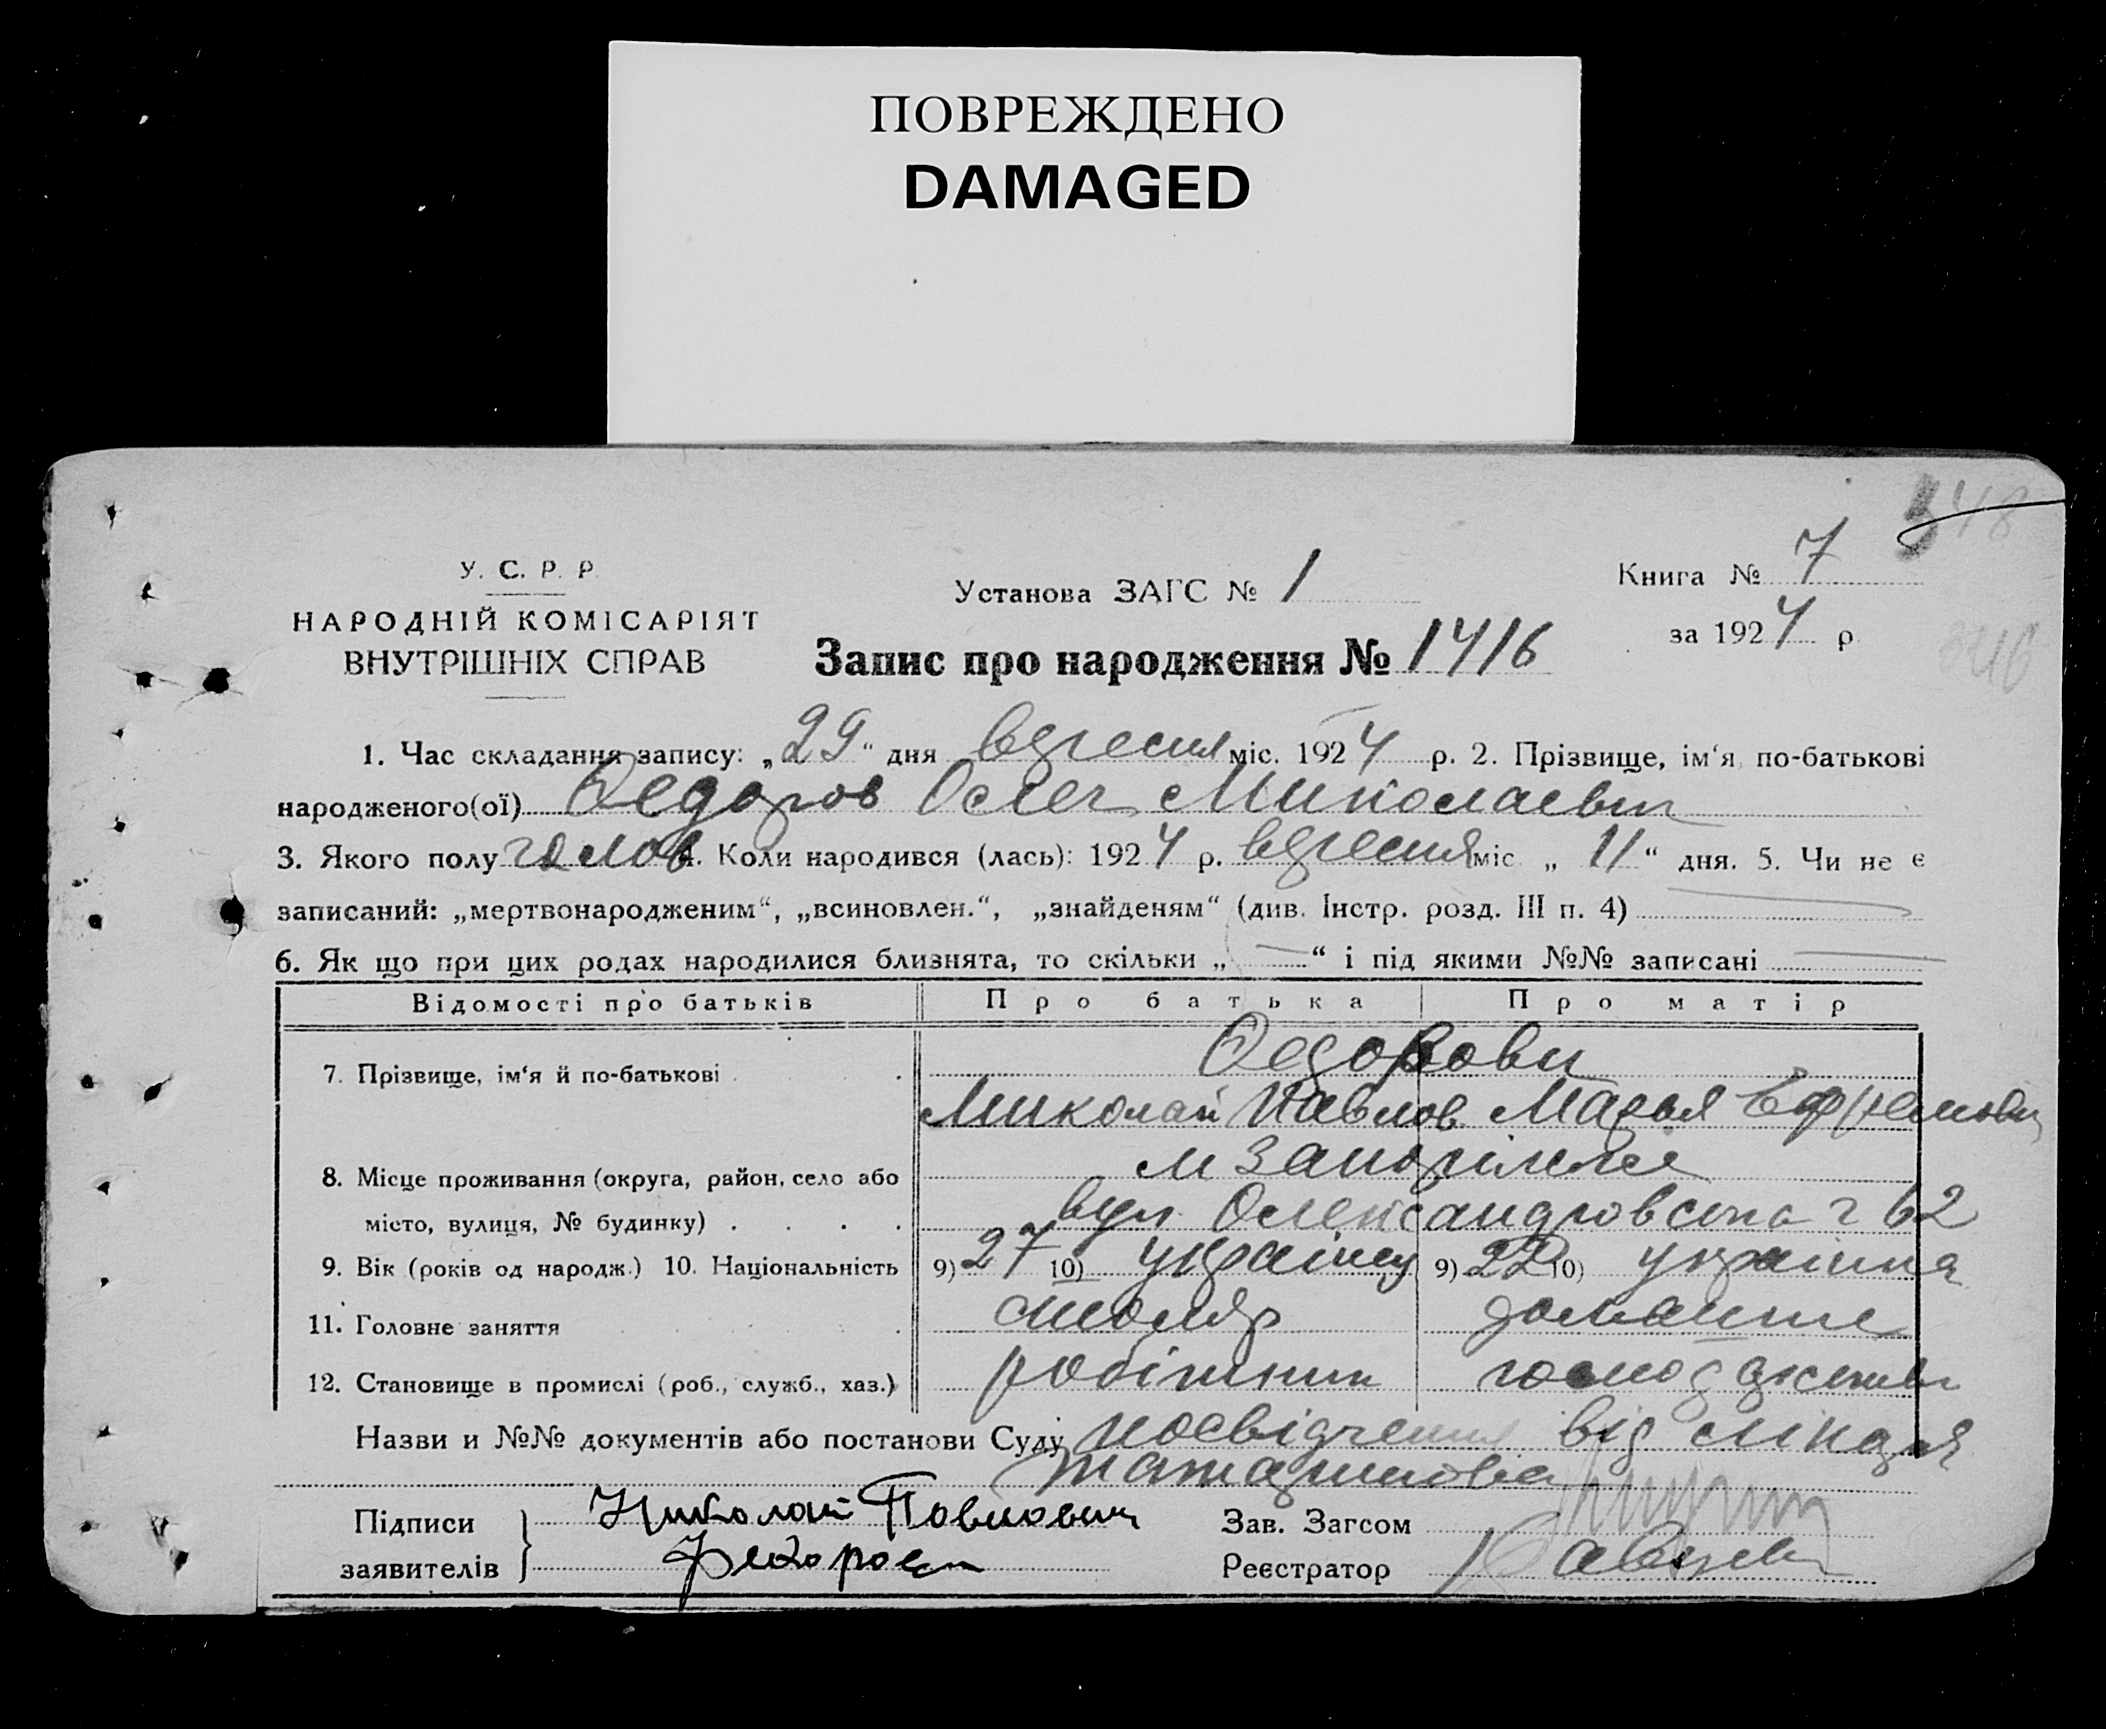 ПОВРЕЖДЕНО
DAMAGED
У. С. Р. Р.
НАРОДНІЙ КОМІСАРІЯТ
ВНУТРІШНІХ СПРАВ
Установа ЗАГС № 1
Запис про народження № 1416
Книга № 7
за 1924 р
1. Час складання запису: „29“ дня вересня міс. 1924 р. 2. Прізвище, ім‘я, по-батькові
народженого(ої) Федоров Олег Миколаевич
3. Якого полу чолов 4. Коли народився (лась): 1924 р. вересня міс „ 11 “ дня. 5. Чи не є
записаний: „мертвонародженим“, „всиновлен.“, „знайденям“ (див. Інстр. розд. III п. 4)
6. Як що при цих родах народилися близнята, то скільки „ — “ і під якими №№ записані —
Відомості про батьків Про батька Про матір
Федорови
7. Прізвище, ім‘я й по-батькові
Миколай Павлов Марья
м Запоріжже
8. Місце проживання (округа, район, село або
місто, вулиця, № будинку) вул Олександровська ч 62
9. Вік (років од народж.) 10. Національність 9) 27 10) українец 9) 22 10) українка
11. Головне заняття столяр домашне
12. Становище в промислі (роб., служб., хаз.) робітник господарство
Назви и №№ документів або постанови Суду посвідчення від
Підписи Николай Павлович
заявителів Федоров
Зав. Загсом
Реєстратор